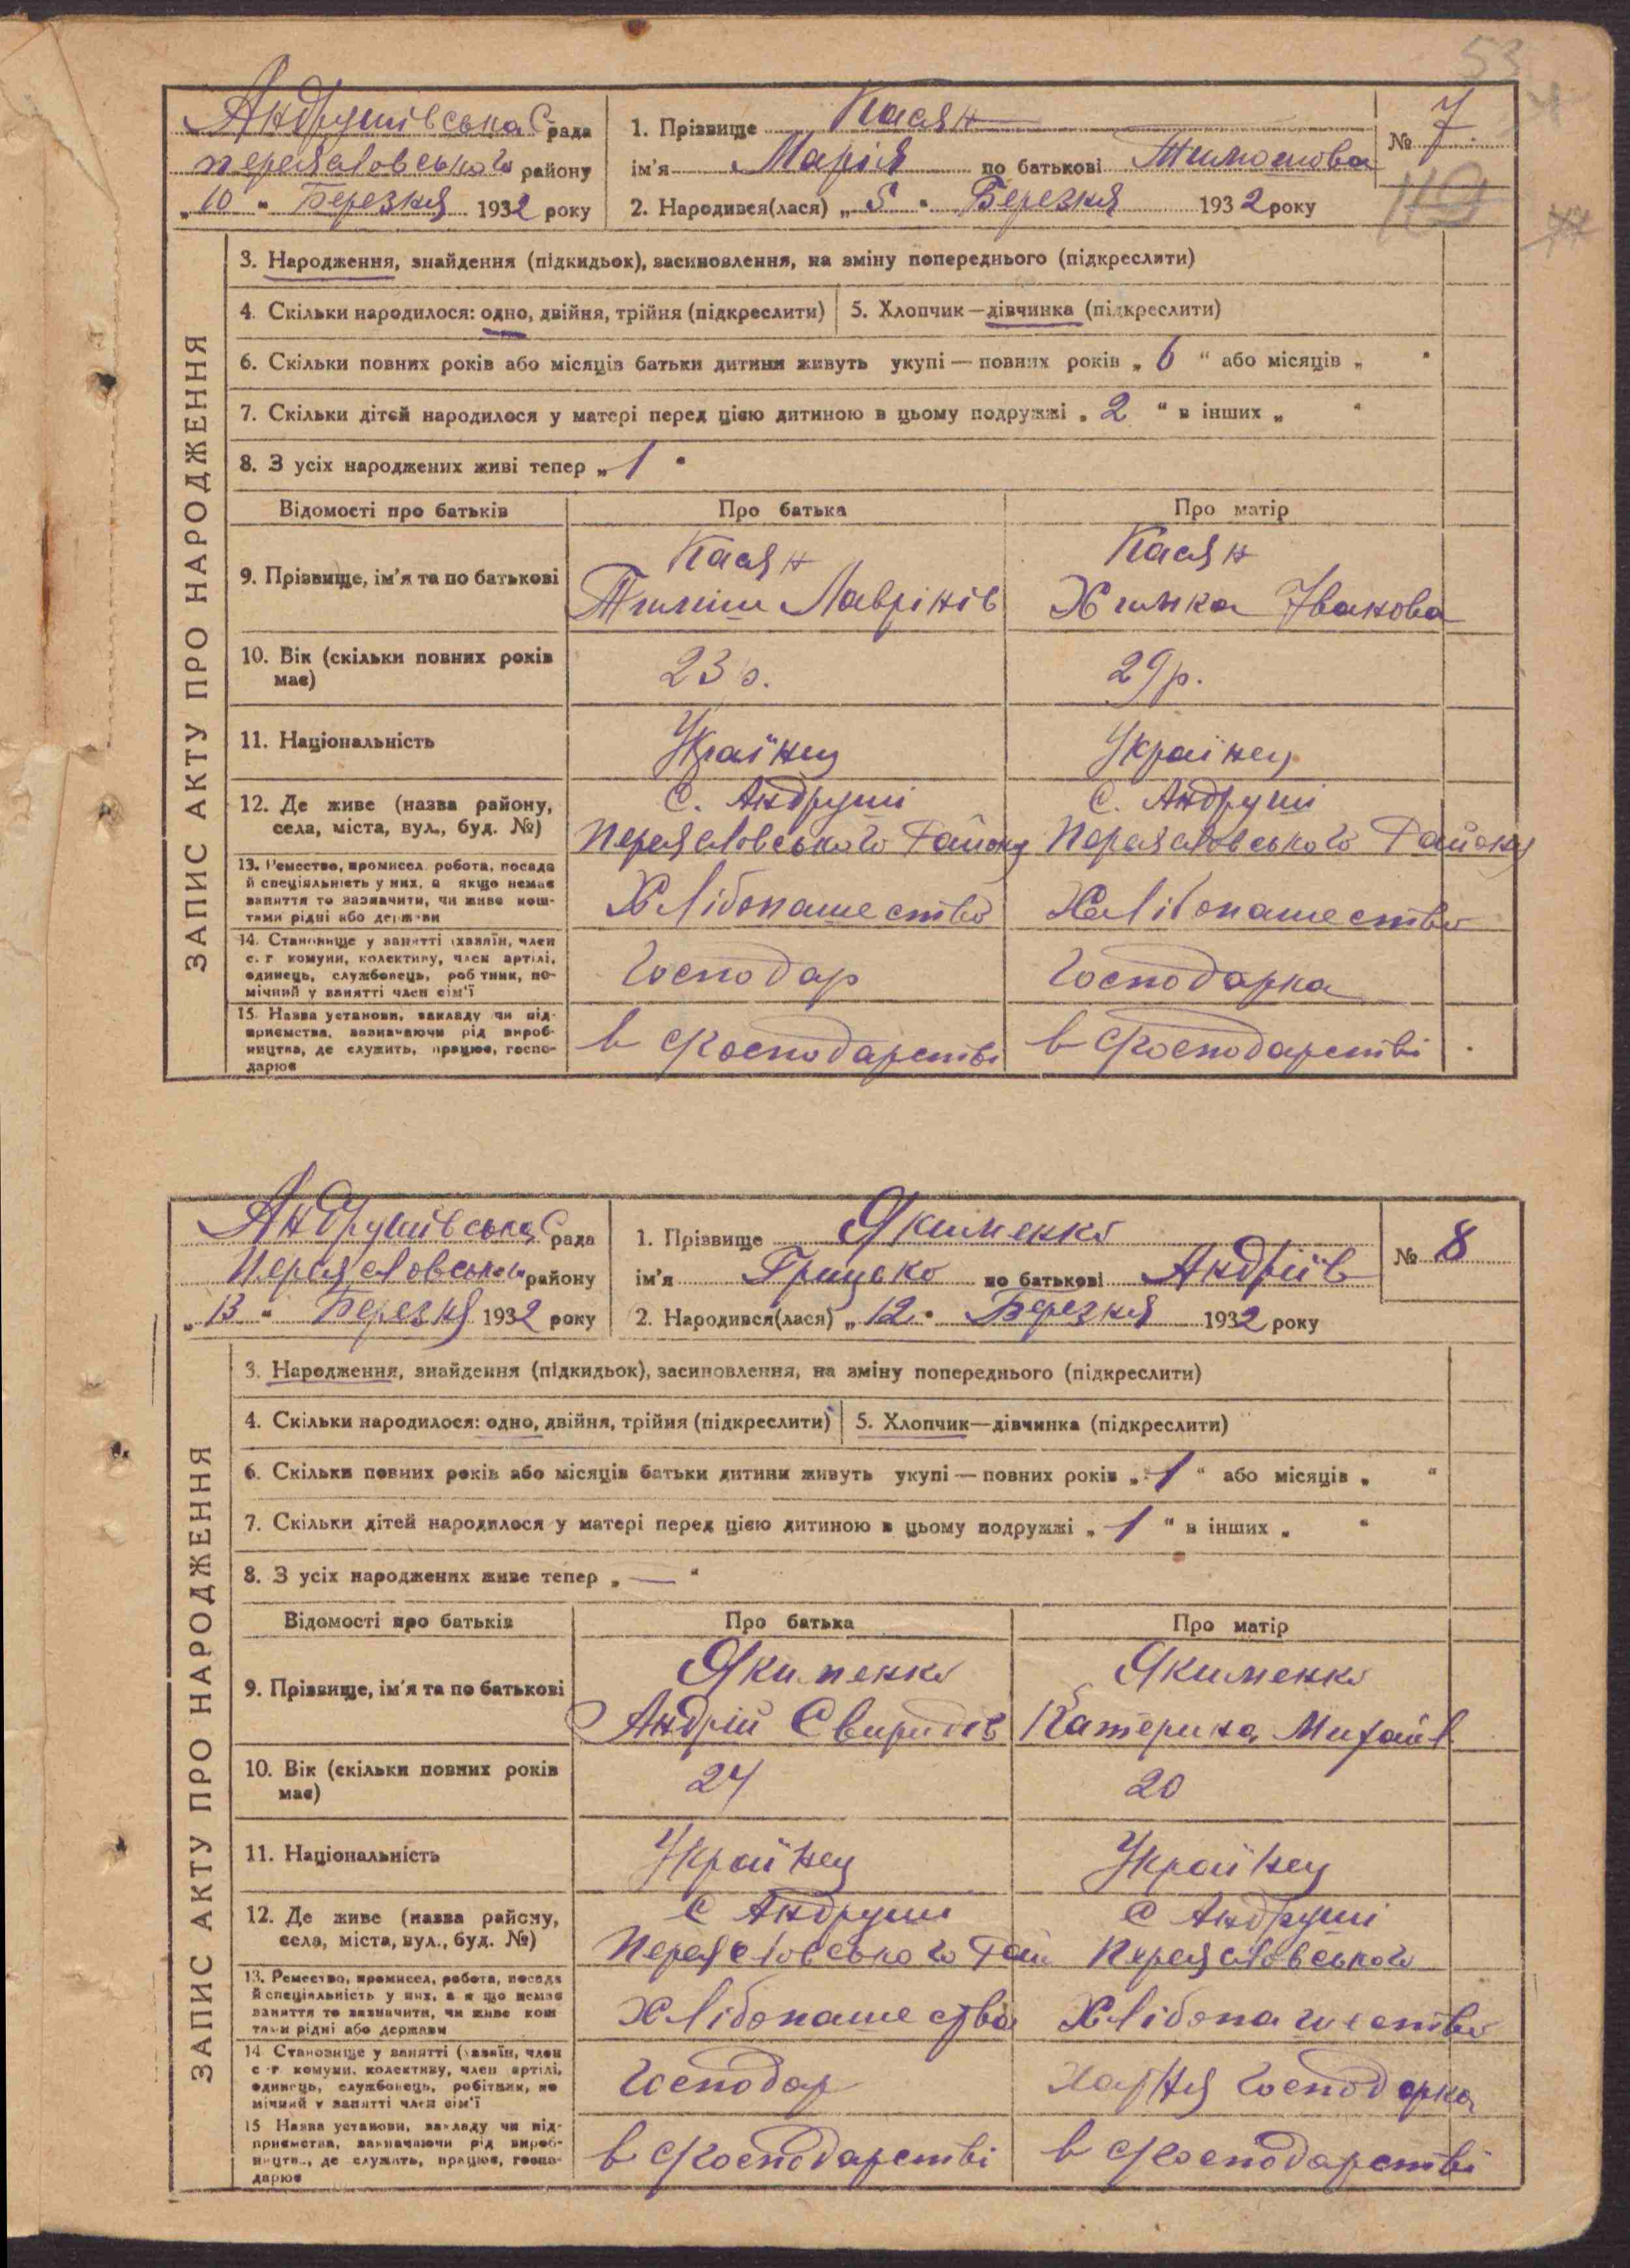 53
Андрушівська С рада
переясловського району
„ 10 “ Березня 1932 року
1. Прізвище Касян
ім'я Марія по батькові Тимошова
2. Народився(лася) „ 5 “ Березня 1932 року
№ 7
ЗАПИС АКТУ ПРО НАРОДЖЕННЯ
3. Народження, знайдення (підкидьок), засиновлення, на зміну попереднього (підкреслити)
4. Скільки народилося: одно, двійня, трійня (підкреслити)
5. Хлопчик — дівчинка (підкреслити)
6. Скільки повних років або місяців батьки дитини живуть укупі — повних років „ 6 “ або місяців „ “
7. Скільки дітей народилося у матері перед цією дитиною в цьому подружжі „ 2 “ в інших „ “
8. З усіх народжених живі тепер „ 1 “
Відомості про батьків Про батька Про матір
9. Прізвище, ім'я та по батькові
Касян
Тиміш Лавріків
Касян
Химка Іванова
10. Вік (скільки повних років
має)
23 р.
29 р.
11. Національність
Українец
Українец
12. Де живе (назва району,
села, міста, вул., буд. №)
С. Андруші
Переясловського Району
С. Андруші
Переясловського Району
13. Ремество, промисел, робота, посада
й спеціяльність у них, а якщо немає
заняття то зазначити, чи живе кош-
тами рідні або держави
Хлібопашество
Хлібопашество
14. Становище у занятті (хазяїн, член
с.-г. комуни, колективу, член артілі,
одинець, службовець, робітник, по-
мічний у занятті член сім'ї
Господар
Господарка
15. Назва установи, закладу чи під-
приємства, зазначаючи рід вироб-
ництва, де служить, працює, госпо-
дарює
в Господарстві
в Господарстві
Андрушівська С рада
Переясловського району
„ 13 “ Березня 1932 року
1. Прізвище Якименко
ім'я Грицько по батькові Андріїв
2. Народився(лася) „ 12 “ Березня 1932 року
№ 8
ЗАПИС АКТУ ПРО НАРОДЖЕННЯ
3. Народження, знайдення (підкидьок), засиновлення, на зміну попереднього (підкреслити)
4. Скільки народилося: одно, двійня, трійня (підкреслити)
5. Хлопчик—дівчинка (підкреслити)
6. Скільки повних років або місяців батьки дитини живуть укупі — повних років „ 1 “ або місяців „ “
7. Скільки дітей народилося у матері перед цією дитиною в цьому подружжі „ 1 “ в інших „ “
8. З усіх народжених живе тепер „ — “
Відомості про батьків Про батька Про матір
9. Прізвище, ім'я та по батькові
Якименко
Андрій Свиридів
Якименко
Катерина Михайл
10. Вік (скільки повних років
має)
24
20
11. Національність
Українец
Українец
12. Де живе (назва району,
села, міста, вул., буд. №)
С Андруши
Переясловського Рай
С Андруші
Переясловського
13. Ремество, промисел, робота, посада
й спеціяльність у них, а якщо немає
заняття то зазначити, чи живе кош
тами рідні або держави
Хлібопашество
Хлібопашество
14 Становище у занятті (хазяїн, член
с-г. комуни, колективу, член артілі,
одинець, службовець, робітник, по
мічний у занятті член сім'ї
Господар
Господарка
15 Назва установи, закладу чи під-
приємства, зазначаючи рід вироб-
ництва, де служить, працює, госпо-
дарює
в Господарстві
в Господарстві